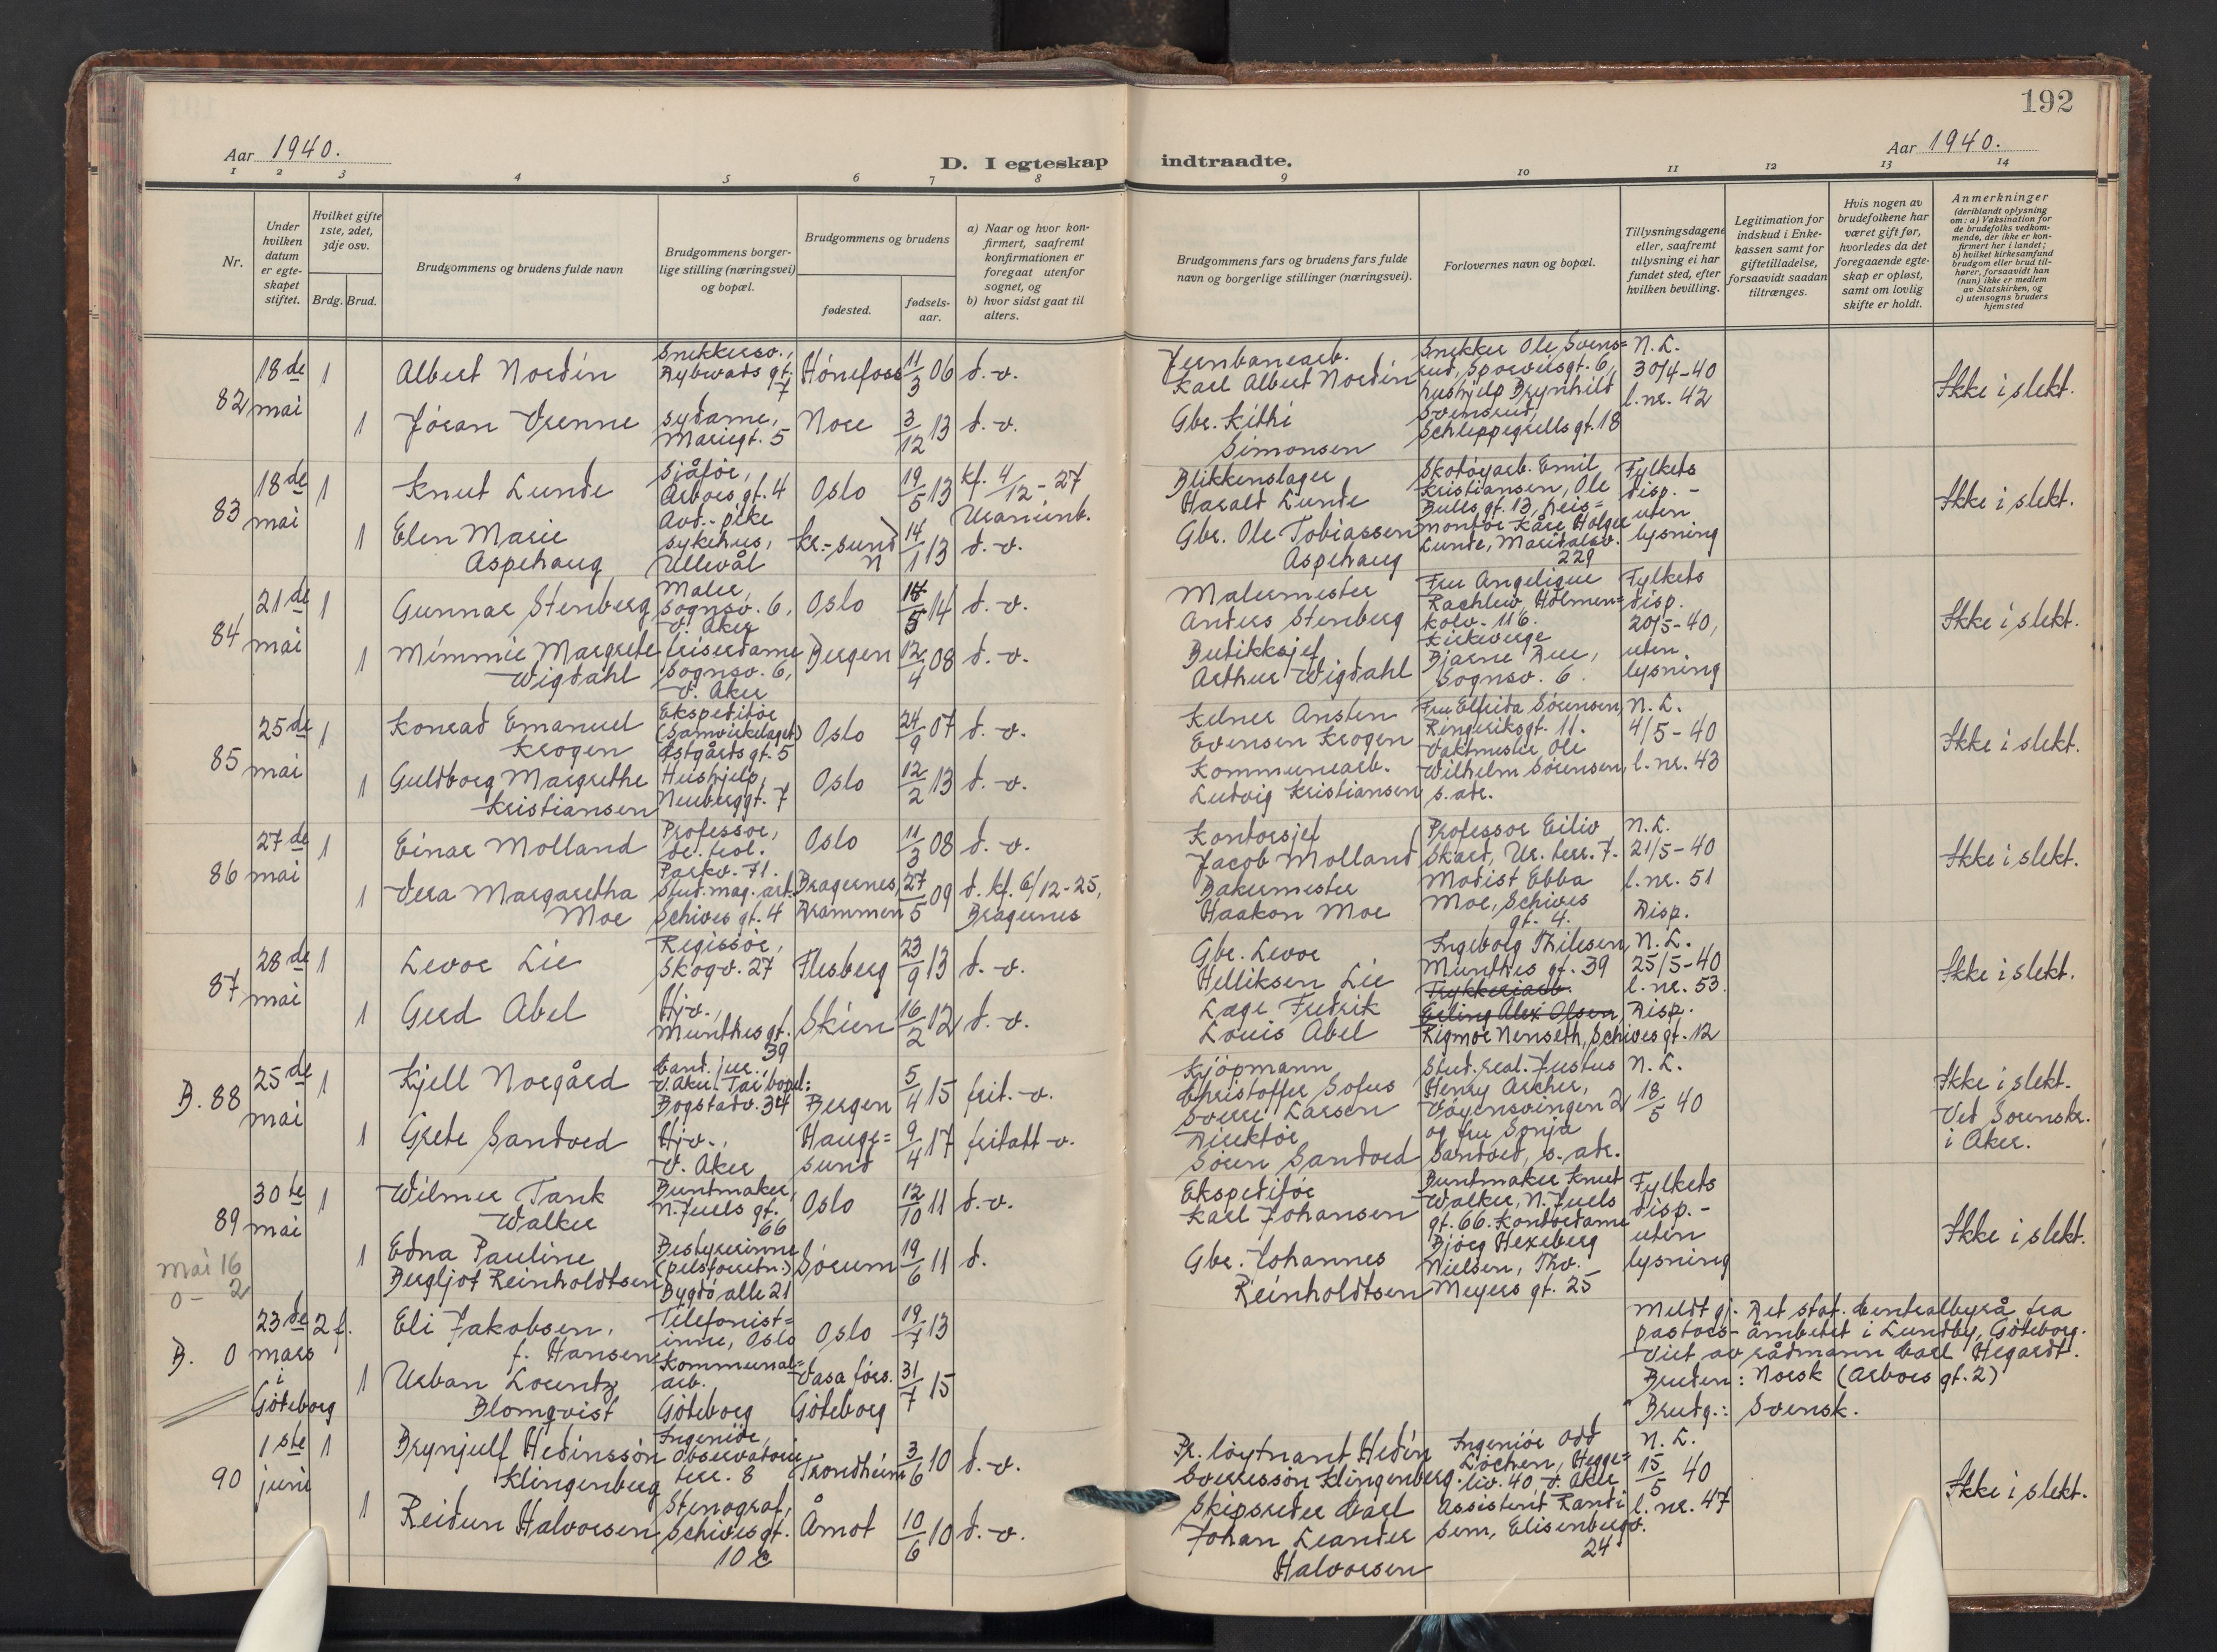 192
Aar 1940.
D. I egteskap indtraadte.
Aar 1940.
1 2 3 4 5 6 7 8 9 10 11 12 13 14
Nr.
Under hvilken datum er egteskapet stiftet.
Hvilket gifte 1ste, 2det, 3dje osv.
Brdg. Brud.
Brudgommens og brudens fulde navn
Brudgommens borgerlige stilling (næringsvei) og bopæl.
Brudgommens og brudens
fødested.
fødselsaar.
a) Naar og hvor konfirmert, saafremt konfirmationen er foregaat utenfor sognet, og
b) hvor sidst gaat til alters.
Brudgommens fars og brudens fars fulde navn og borgerlige stillinger (næringsvei).
Forlovernes navn og bopæl.
Tillysningsdagene eller, saafremt tillysning ei har fundet sted, efter hvilken bevilling.
Legitimation for indskud i Enkekassen samt for giftetilladelse, forsaavidt saadan tiltrænges.
Hvis nogen av brudefolkene har været gift før, hvorledes da det foregaaende egteskap er opløst, samt om lovlig skifte er holdt.
Anmerkninger
(deriblandt oplysning om: a) Vaksination for de brudefolks vedkommende, der ikke er konfirmert her i landet;
b) hvilket kirkesamfund brudgom eller brud tilhører, forsaavidt han (hun) ikke er medlem av Statskirken, og
c) utensogns bruders hjemsted
82 18de mai
1 Albert Nordin
Snekkersv., Dybwads gt. 7
Hönefoss 11/3 06 d. - v.
1 Jöran Vrenne
sydame, Mariegt. 5
Nore 3/12 13 d. - v.
Jernbanearb. Karl Albert Nordin
Gbr. Kithi Simonsen
Snekker Ole Svensrud, Sporveisgt. 6,
hushjelp Brynhild Svensrud, Schleppegrellsgt. 18
N. L. 30/4-40 l. nr. 42
Ikke i slekt.
83 18de mai
1 Knut Lunde
Sjåför, Arboes gt. 4
Oslo 19/5 13 kf. 4/12-27 Uranienb.
1 Elen Marie Aspehaug
Avd.-pike sykehus, Ullevål
Kr.-sund N 14/1 13 d. - v.
Blikkenslager Harald Lunde
Gbr. Ole Tobiassen Aspehaug
Skotöyarb. Emil Kristiansen, Ole Bulls gt. 13, heismontör Kåre Holger Lunde, Maridalsv. 229
Fylkets disp. - uten lysning
Ikke i slekt.
84 21de mai
1 Gunnar Stenberg
Maler, Sognsv. 6, V. Aker
Oslo 5 14 d. - v.
1 Mimmie Margrete Wigdahl
friserdame Sognsv. 6, V. Aker
Bergen 12/4 08 d. - v.
Malermester Anders Stenberg
Butikksjef Arthur Wigdahl
Fru Angelique Rachlew, Holmenkolv. 116.
Kirkeverge Bjarne Rue, Sognsv. 6.
Fylkets disp. 20/5-40, uten lysning
Ikke i slekt.
85 25de mai
1 Konrad Emanuel Krogen
Ekspeditör (Samvirkelaget) Östgårds gt. 5
Oslo 24/9 07 d. - v.
1 Guldborg Margrethe Kristiansen
Hushjelp, Neuberggt. 7
Oslo 12/2 13 d. - v.
Kelner Ansten Evensen Krogen
Kommunearb. Ludvig Kristiansen
Fru Elfrida Sörensen, Ringeriksgt. 11.
Vaktmester Ole Wilhelm Sörensen, s. adr.
N. L. 4/5-40 l. nr. 43
Ikke i slekt.
86 27de mai
1 Einar Molland
Professor, dr. teol. Parkv. 71.
Oslo 11/3 08 d. - v.
1 Vera Margaretha Moe
Stud. mag. art. Schives gt. 4
Bragernes, Drammen 27/5 09 d. kf. 6/12-25, Bragernes
Kontorsjef Jacob Molland
Bakermester Haakon Moe
Professor Eiliv Skard, Ur. terr. 7.
Modist Ebba Moe, Schives gt. 4.
N. L. 21/5-40 l. nr. 51 Disp.
Ikke i slekt.
87 28de mai
1 Levor Lie
Regissör, Skogv. 27
Flesberg 23/9 13 d. - v.
1 Gerd Abel
Hjv., Munthes gt. 39
Skien 16/2 12 d. - v.
Gbr. Levor Helliksen Lie
Læge Fredrik Louis Abel
Ingeborg Thilesen, Munthes gt. 39
Trykkeriarb. Erling Alex Olsen
Rigmor Nenseth, Schives gt. 12
N. L. 25/5-40 l. nr. 53. Disp.
Ikke i slekt.
B. 88 25de mai
1 Kjell Norgård
Cand. jur., V. Aker.
Bogstadv. 34
Bergen 5/4 15 frit. - v.
1 Grete Sandved
Hjv., V. Aker
Haugesund 9/4 17 fritatt - v.
Kjöpmann Christoffer Sofus Sverre Larsen
Direktör Sören Sandved
Stud. real. Justus Henry Archer, Vöyensvingen 2
og fru Sonja Sandved, s. adr.
N. L. 18/5 40
Ikke i slekt.
Ved Sorenskr. i Aker.
89 30te mai
1 Wilmer Tank Walker
Buntmaker, N. Juels gt. 66
Oslo 12/10 11 d. - v.
1 Edna Pauline Bergljot Reinholdtsen
Bestyrerinne (pelsforretn.) Bygdö alle 21
Sörum 19/6 11 d.
Ekspeditör Karl Johansen
Gbr. Johannes Reinholdtsen
Buntmaker Knut Walker, N. Juels gt. 66. Kontordame Björg Hexeberg Nielsen, Thv. Meyers gt. 25
Fylkets disp. - uten lysning
Ikke i slekt.
Mai 16
0 - 2
B. 0 23de mars i Göteborg
2 f. Eli Jakobsen, f. Hansen
Telefonistinne, Oslo
Oslo 19/7 13
1 Urban Lorentz Blomqvist
Kommunalarb. Göteborg
Vasa förs. Göteborg 31/7 15
Meldt gj. Det stat. Centralbyrå fra
pastorsämbetet i Lundby, Göteborg.
Viet av rådmann Carl Hegardt.
Bruden: Norsk (Arboes gt. 2)
Brudg.: Svensk.
90 1ste juni
1 Brynjulf Hedinssön Klingenberg
Ingeniör, Observatorie terr. 8
Trondheim 3/6 10 d. - v.
1 Reidun Halvorsen
Stenograf, Schives gt. 10 c
Åmot 10/6 10 d. - v.
Pr. löytnant Hedin Sverressön Klingenberg.
Skipsreder Carl Johan Leander Halvorsen
Ingeniör Odd Löchen, Heggeliv. 40, V. Aker
Assistent Randi Sem, Elisenbergv. 24
N. L. 15/5 40 l. nr. 47
Ikke i slekt.